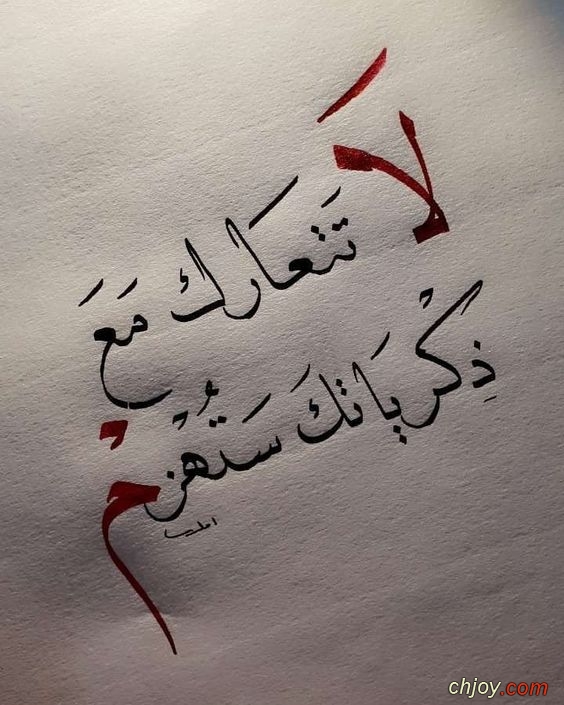 لَا تَتعَارك مَعَ
ذِكْرياتكَ سَتُهْزمْ
chjoy.com